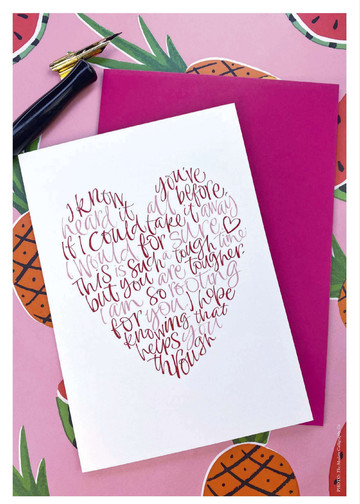 I know you've
heard it all before,
if I could take it away
I would for sure
This is such a tough time
but you are tougher
I am so rooting
for you, I hope
knowing that
helps you
through